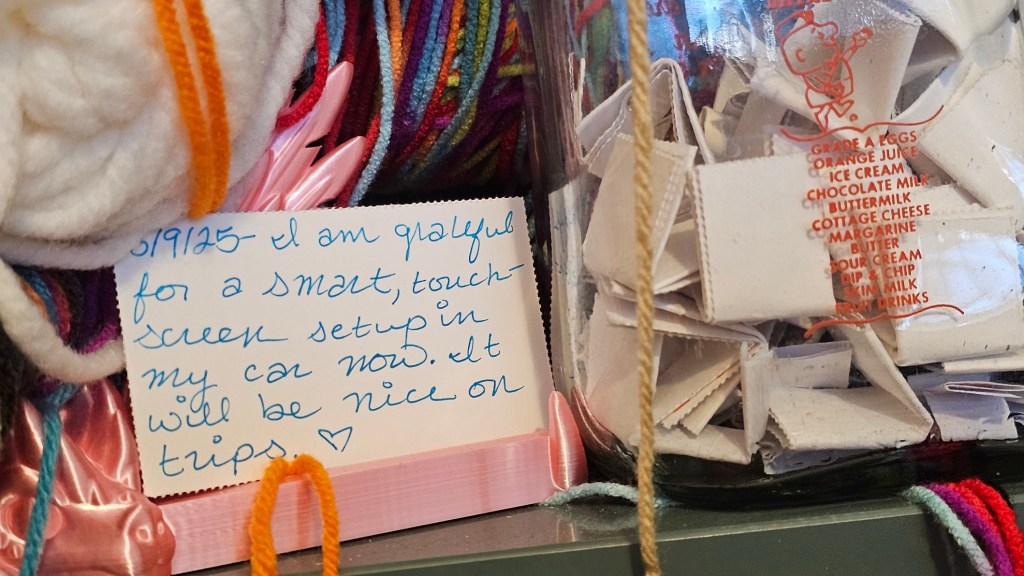 5/9/25- I am grateful
for a smart, touch-
screen setup in
my car now. It
will be nice on
trips. ♡
GRADE A EGGS
ORANGE JUICE
ICE CREAM
CHOCOLATE MILK
BUTTERMILK
COTTAGE CHEESE
MARGARINE
BUTTER
SOUR CREAM
DIP & CHIP
SKIM MILK
DRINKS